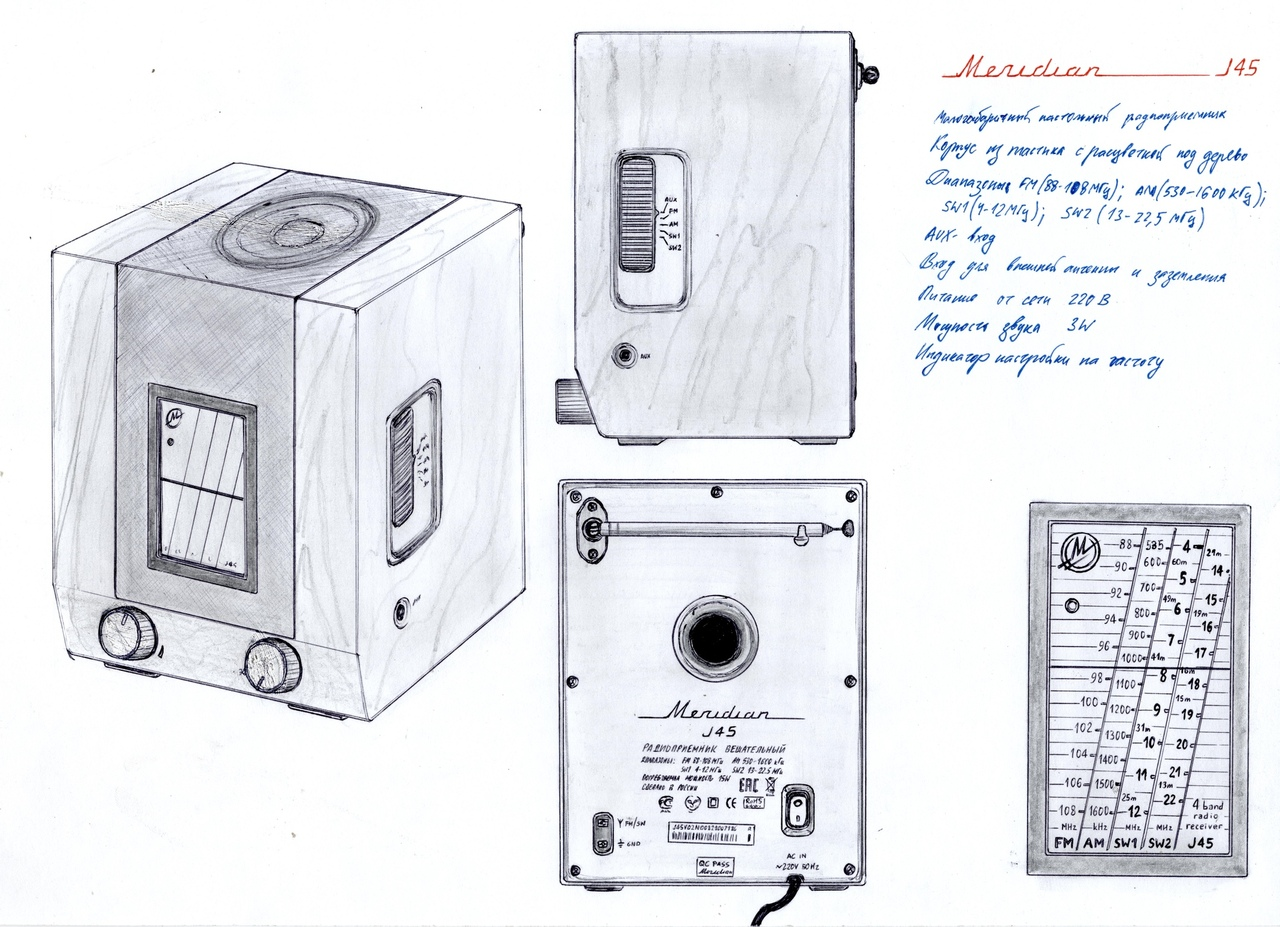 Meridian J45
Малогабаритный настольный радиоприемник
Корпус из пластика с расцветкой под дерево
Диапазоны FM (88-108 МГц); AM (530-1600 кГц);
SW1 (4-12 МГц); SW2 (13-22,5 МГц)
AUX- вход
Вход для внешней антенны и заземления
Питание от сети 220 В
Мощность звука 3W
Индикатор настройки на частоту
AUX
FM
AM
SW1
SW2
AUX
M
J45
Meridian
J45
РАДИОПРИЕМНИК ВЕЩАТЕЛЬНЫЙ
FM 88-108 МГц AM 530-1600 кГц
SW1 4-12 МГц SW2 13-22,5 МГц
МОЩНОСТЬ 15W
СДЕЛАНО В РОССИИ
EAC
CE RoHS
FM/SW
GND
QC PASS
Meridian
AC IN
~220V 50Hz
M
88 585 4 21m
90 600 60m 14
700 5
92 49m 15
800 6 19m
94 16
900 7
96 17
1000 41m
98 8 16m
1100 18
100 15m
1200 9 19
102 31m
1300 10 20
104 1400
11 21
106 1500 13m
25m 22
108 1600 12 4 band
radio
MHz kHz MHz MHz receiver
FM AM SW1 SW2 J45